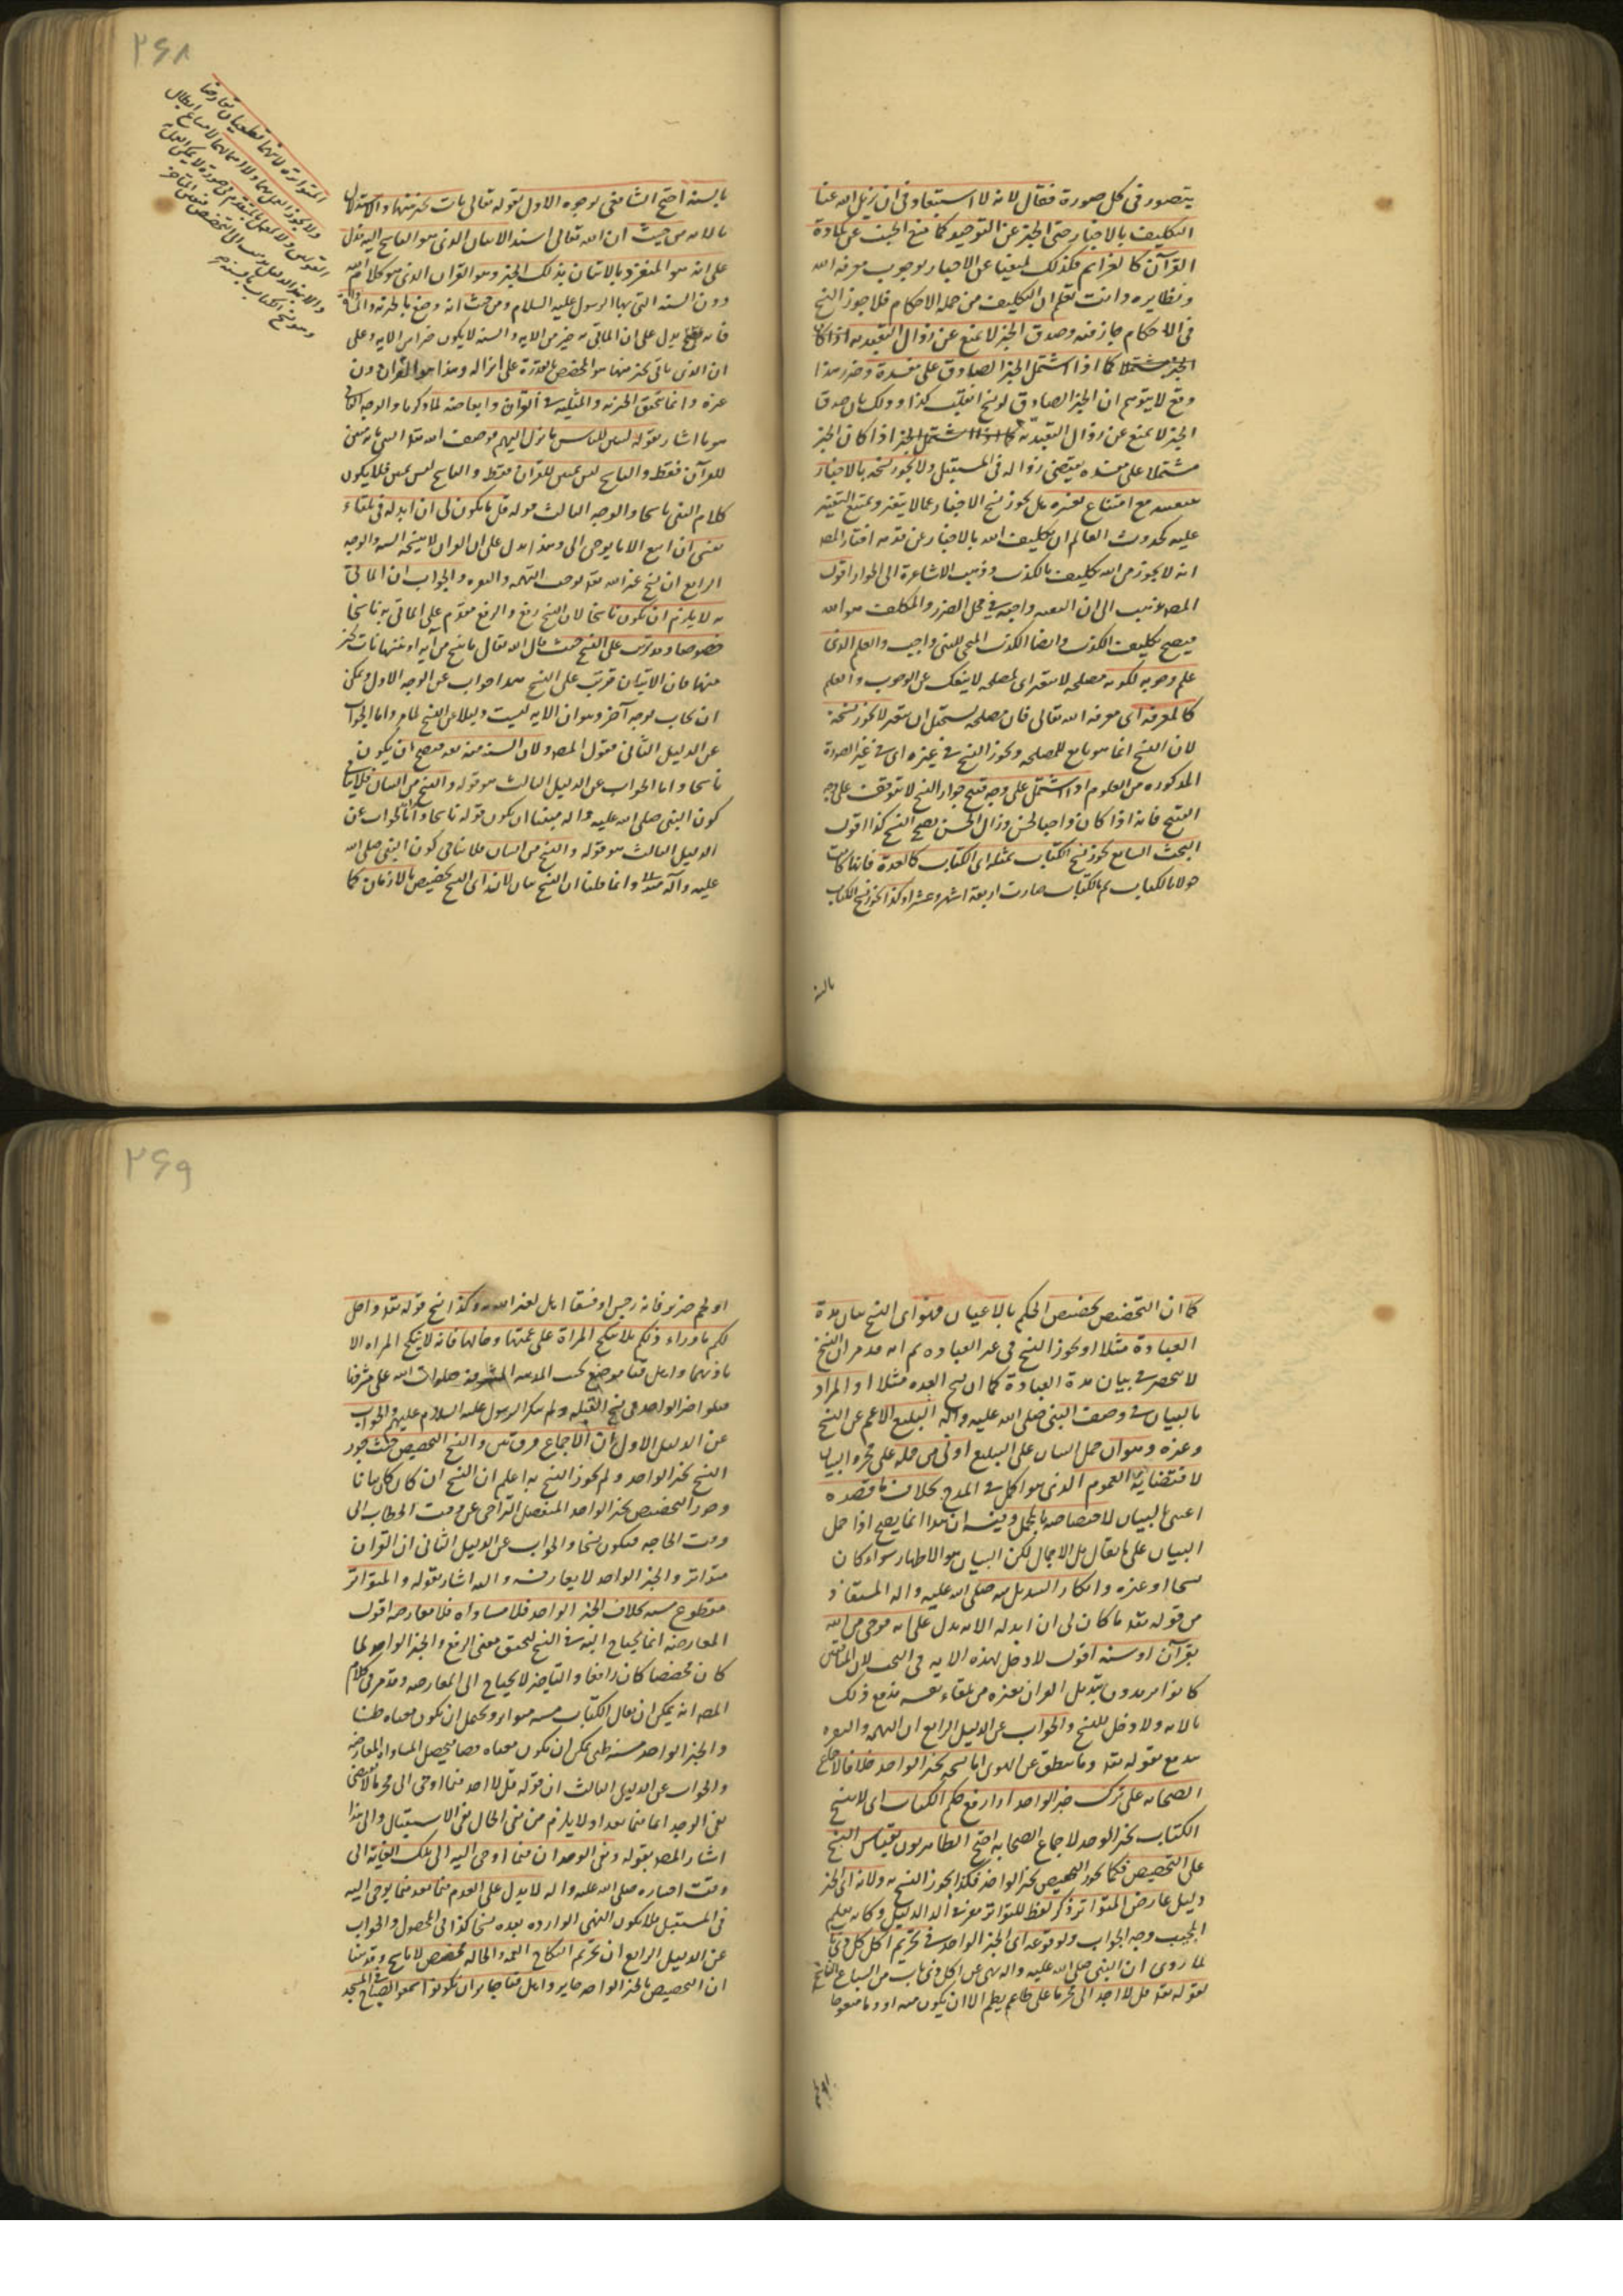 ۲۶۸
يتصور فى كل صورة فقال لانه لا استبعاد فى ان يزيل الله عنا
التكليف بالاخبار حتى الخبر عن التوحيد كما منع الجنب عن تلاوة
القرآن كالعزائم فكذلك بوجوب معرفة الله
ونظايره وانت تعلم ان التكليف من جملة الاحكام فلا جوز النسخ
فى الاحكام جاز فيه وصدق الخبر لا يمنع عن زوال التعبد به اذا كان
الخبر مشتملا كما اذا اشتمل الخبر الصادق على مفسدة وضرر هذا
وقع لا يتوهم ان الخبر الصادق لو نسخ انقلب كذبا وذلك بان صدق
الخبر لا يمنع عن زوال التعبد به كما اذا اشتمل الخبر اذا كان الخبر
مشتملا على مفسدة يقتضى زواله فى المستقبل ولا يجوز نسخه بالاخبار
بنقيضه مع امتناع تغيره بل يجوز نسخ الاخبار عما لا يتغير ويمتنع التغيير
عليه كحدوث العالم ان تكليف الله بالاخبار عن قدمه اختار المصـ
انه لا يجوز من الله تكليف بالكذب وذهب الاشاعرة الى الجواز اقول
المصـ ذهب الى ان واجبة فى محل الضرر والمكلف هو الله
فيصح تكليف الكذب وايضا الكذب المنجى للنبى واجب والعلم الذى
علم وجوبه لكونه مصلحة لا يتغير اى لمصلحة لا ينفك عن الوجوب والعلم
كالمعرفة اى معرفة الله تعالى فان مصلحته يستحيل ان يتغير لا يجوز نسخه
لان النسخ انما هو تابع للمصلحة ويجوز النسخ فى غيره اى فى غير الصورة
المذكورة من العلوم اذا اشتمل على وجه قبح جواز النسخ لا يتوقف على وجه
القبح فانه اذا كان واجبا لحسن وزال الحسن يصح النسخ كذا اقول
البحث السابع يجوز نسخ الكتاب بمثله اى الكتاب كالعدة فانها كانت
حولا بالكتاب ثم بالكتاب صارت اربعة اشهر وعشرا وكذا يجوز نسخ الكتاب
بالسنة
بالسنة احتج الشافعى لوجوه الاول بقوله تعالى نات بخير منها والاستدلال
بالاية من حيث ان الله تعالى اسند الاتيان الذى هو الناسخ اليه فدل
على انه هو المنفرد بالاتيان بذلك الخير وهو القران الذى هو كلام الله
دون السنة التى بها الرسول عليه السلام ومن حيث انه وصف بالخيرية والمثلية
فانه يدل على ان الماتى به خير من الاية والسنة لا يكون خيرا من الاية وعلى
ان الذى ياتى بخير منها هو المختص بالقدرة على انزاله وهذا هو القران دون
غيره وانما تحقق الخيرية والمثلية فى القران وابعاضه لما ذكرنا والوجه الثانى
هو ما اشار بقوله لتبين للناس ما نزل اليهم فوصف الله تعالى النبى بانه مبين
للقرآن فقط والناسخ ليس بمبين للقران فقط والناسخ ليس بمبين فلا يكون
كلام النبى ناسخا والوجه الثالث قوله قل ما يكون لى ان ابدله من تلقاء
نفسى ان اتبع الا ما يوحى الى وهذا يدل على ان القران لا ينسخه السنة والوجه
الرابع ان نسخ غير الله تعالى يوجب التهمة والجواب ان الماتى
به لا يلزم ان يكون ناسخا لان النسخ رفع والرفع مقدم على الماتى به ناسخا
خصوصا وقد رتب على النسخ حيث قال الله تعالى ما ننسخ من آية او ننسها نات بخير
منها فان الاتيان قد رتب على النسخ هذا جواب عن الوجه الاول ويمكن
ان يجاب بوجه آخر وهو ان الاية ليست دليلا عن النسخ لما مر واما الجواب
عن الدليل الثانى فقول المصـ ولان السنة منه تعالى فيصح ان يكون
ناسخا واما الجواب عن الدليل الثالث هو قوله والنسخ من البيان فلا ينافى
كون النبى صلى الله عليه واله مبينا ان يكون قوله ناسخا واما الجواب عن
الدليل الثالث هو قوله والنسخ من البيان فلا ينافى كون النبى صلى الله
عليه وآله مبينا وانما قلنا ان النسخ بيان لانه اى النسخ تخصيص بالازمان كما
المتواترة لانهما قطعيان تعارضا
ولا يجوز العمل بهما ولا اهمالهما لامتناع ابطال
القولين ولا العمل بالمتقدم
وهو نسخ الكتاب بالسنة
۲۶۹
كما ان التخصيص تخصيص الحكم بالاعيان فهو اى النسخ بيان مدة
العبادة مثلا او يجوز النسخ فى غير العبادة ثم انه قد مر ان النسخ
لا ينحصر فى بيان مدة العبادة كما ان نسخ العدة مثلا او المراد
بالبيان فى وصف النبى صلى الله عليه وآله التبليغ الاعم عن النسخ
وغيره وهو ان حمل البيان على التبليغ اولى من حمله على مجرد البيان
لاقتضاية العموم الذى هو اكمل فى المدح بخلاف ما قصده
اعنى البيان لاختصاصه بالمجمل وفيه ان هذا انما يصح اذا حمل
البيان على ما يقابل الاجمال لكن البيان هو الاظهار سواء كان
نسخا او غيره وانكار التبديل منه صلى الله عليه واله المستفاد
من قوله تعالى ما كان لى ان ابدله الاية يدل على انه موحى من الله
بقرآن او سنة اقول لا دخل لهذه الاية فى البحث لان المنافقين
كانوا يريدون تبديل القران بغيره من تلقاء نفسه فدفع ذلك
بالاية ولا دخل للنسخ والجواب عن الدليل الرابع ان التهمة
يندفع بقوله تعالى وما ينطق عن الهوى اما نسخه بخبر الواحد خلافا لاجماع
الصحابة على ترك خبر الواحد اذا رفع حكم الكتاب اى لا ينسخ
الكتاب بخبر الوحد لاجماع الصحابة احتج الظاهريون بقياس النسخ
على التخصيص فكما يجوز التخصيص بخبر الواحد فكذا يجوز النسخ به ولانه اى الخبر
دليل عارض المتواتر ذكر لفظ المتواتر
المجيب وجه الجواب ولوقوعه اى الخبر الواحد فى تحريم اكل كل ذى ناب
لما روى ان النبى صلى الله عليه واله نهى عن اكل ذى ناب من السباع الناسخ
لقوله تعالى قل لا اجد الى محرما على طاعم يطعمه الا ان يكون ميتة او دما مسفوحا
او لحم خنزير فانه رجس او فسقا اهل لغير الله به وكذا نسخ قوله تعالى واحل
لكم ما وراء ذلكم بلا ينكح المراة على عمتها وخالها فانه لا ينكح المراه الا
باذنهما واهل قبا صلوات الله على مشرفها
قبلوا خبر الواحد فى نسخ القبلة ولم ينكر الرسول عليه السلام عليهم والجواب
عن الدليل الاول ان الاجماع فرق بين والنسخ التخصيص حيث جوز
النسخ بخبر الواحد ولم يجوز النسخ به اعلم ان النسخ ان كان كان بيانا
وجوز التخصيص بخبر الواحد المنفصل المتراخى عن وقت الخطاب الى
وقت الحاجة فيكون نسخا والجواب عن الدليل الثانى ان القران
متواتر والخبر الواحد لا يعارضه واليه اشار بقوله والمتواتر
مقطوع متنه بخلاف الخبر الواحد فلا مساواة فلا معارضة اقول
المعارضة انما يحتاج اليه فى النسخ لتحقق معنى الرفع والخبر الواحد لما
كان مخصصا كان رافعا والتاخير لا يحتاج الى المعارضة وقد مر فى كلام
المصـ انه يمكن ان يقال الكتاب متنه متواتر ويحتمل ان يكون معناه ظنيا
والخبر الواحد متنه ظنى يمكن ان يكون معناه نصا فيحصل المساواة المعارضة
والجواب عن الدليل الثالث ان قوله قل لا اجد فيما اوحى الى محرما لا يقتضى
نفى الوجد اما فيما بعد اذ لا يلزم من نفى الحال نفى الاستقبال والى هذا
اشار المصـ بقوله ونفى الوجدان فيما اوحى اليه الى تلك الغاية الى
وقت اخباره صلى الله عليه واله لا يدل على العدم فيما بعد فيما يوحى اليه
فى المستقبل فلا يكون النهى الواردة بعده نسخا كذا فى المحصول والجواب
عن الدليل الرابع ان تحريم النكاح العمة والخالة مخصص لا ناسخ وقد بينا
ان التخصيص بالخبر الواحد جايز واهل قبا جايز ان يكونوا سمعوا فى المسجد